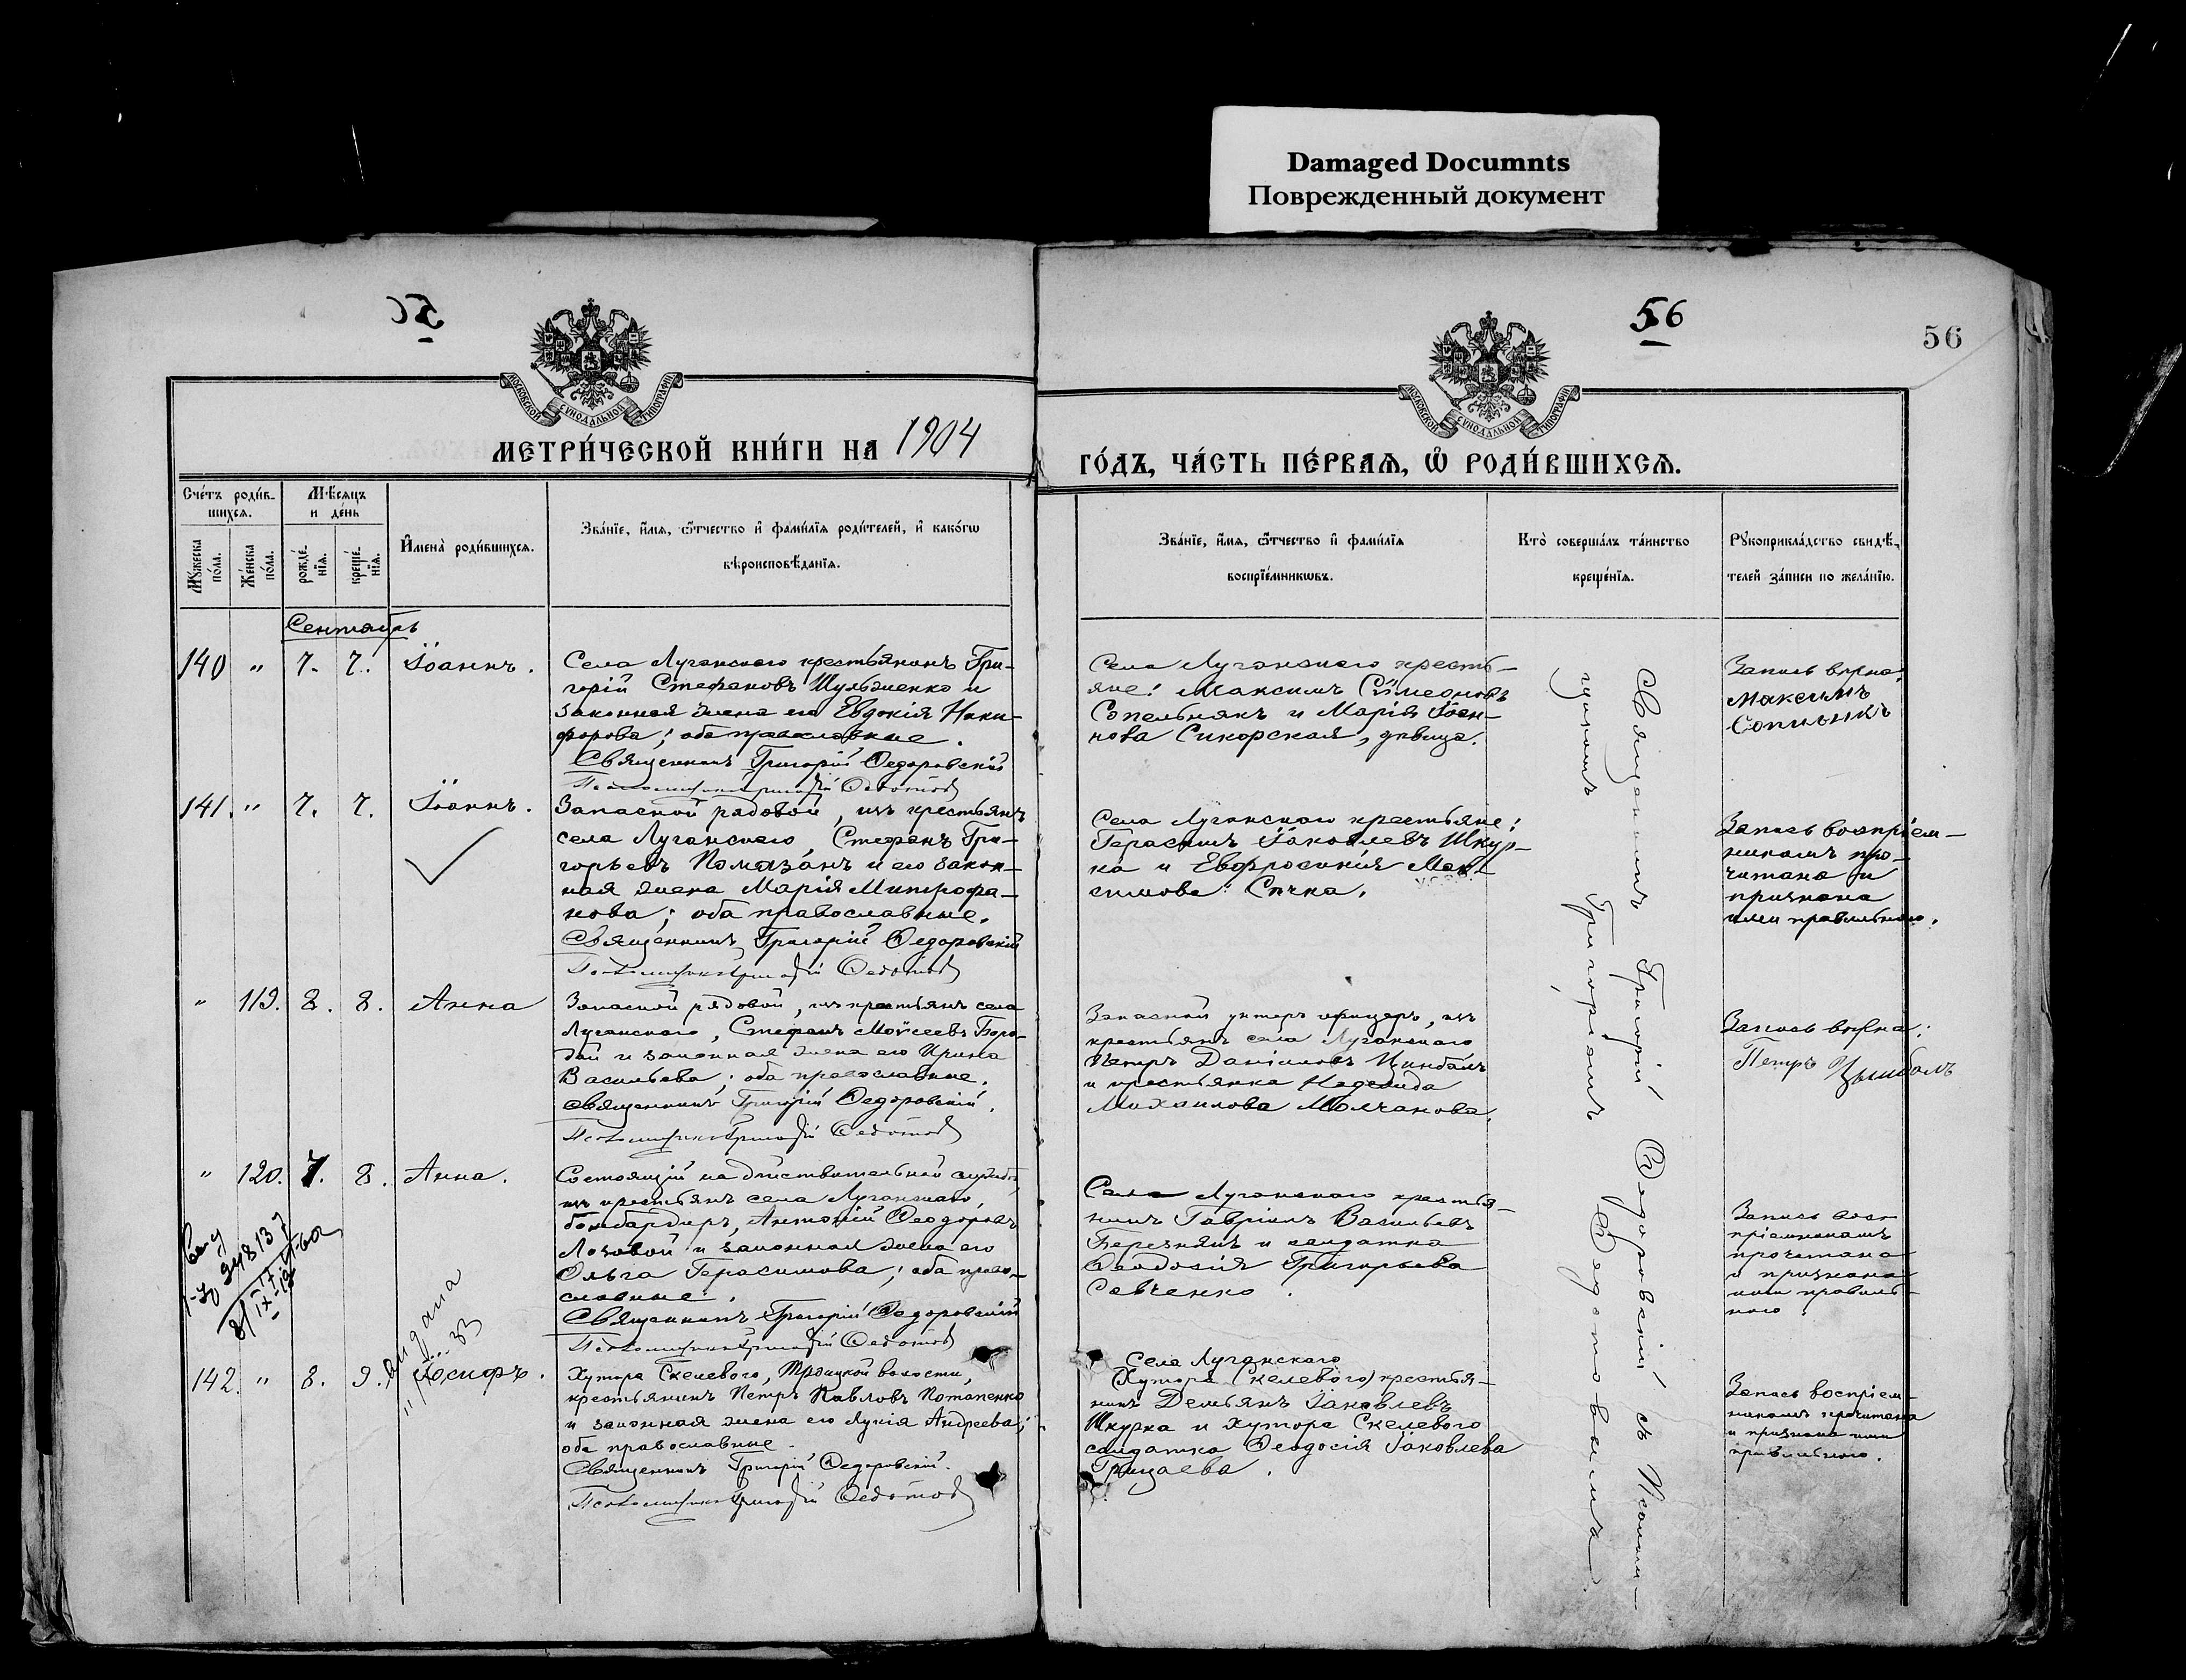 Damaged Documnts
Поврежденный документ
56
56
МОСКОВСКОЙ СѴНОДАЛЬНОЙ ТИПОГРАФІИ
МОСКОВСКОЙ СѴНОДАЛЬНОЙ ТИПОГРАФІИ
МЕТРИ́ЧЕСКОЙ КНИ́ГИ НА 1904
ГО́ДЪ, ЧА́СТЬ ПЕ́РВАѦ, Ѽ РОДИ́ВШИХСѦ.
Сче́тъ роди́в-
шихсѧ.
Мѣ́сѧцъ
и де́нь
Мꙋжеска
по́ла.
Же́нска
по́ла.
рожде́-
нїѧ.
креще́-
нїѧ.
И҆мена̀ роди́вшихсѧ.
Зва́нїе, и҆́мѧ, ѻ҆́тчество и҆ фами́лїѧ роди́телей, и҆ како́гѡ
вѣроисповѣ́данїѧ.
Зва́нїе, и҆́мѧ, ѻ҆́тчество и҆ фами́лїѧ
воспрїе́мникѡвъ.
Кто̀ соверша́лъ та́инство
креще́нїѧ.
Рꙋкоприкла́дство свидѣ́-
телей за́писи по жела́нїю.
Сентябрь
140 " 7. 7. Іоаннъ.
Села Луганского крестьянинъ Гри-
горій Стефановъ Шульженко и
законная жена его Евдокія Ники-
форова; оба православные.
Священникъ Григорій Ѳедоровскій
Псаломщикъ Григорій Ѳедотов
Села Луганского кресть-
яне: Максимъ Сѵмеоновъ
Сопельнякъ и Марія Іоан-
нова Сикорская, девица.
Запись верна:
Максимъ
Сопильникъ
141. " 7. 7. Іоаннъ.
Запасной рядовой, изъ крестьянъ
села Луганского, Стефанъ Гри-
горьевъ Помазанъ и его закон-
ная жена Марія Митрофа-
нова; оба православные.
Священникъ Григорій Ѳедоровскій
Псаломщикъ Григорій Ѳедотов
Села Луганского крестьяне:
Герасимъ Іаковлевъ Шкур-
ка и Евфросинія Мак-
симова Сечка.
Запись воспріем-
никамъ про-
читана и
признана
ими правильною.
" 119. 8. 8. Анна
Запасной рядовой, изъ крестьянъ села
Луганского, Стефанъ Моѵсеевъ Боро-
дай и законная жена его Ирина
Васильева; оба православные.
Священникъ Григорій Ѳедоровскій.
Псаломщикъ Григорій Ѳедотов
Запасной унтеръ офицеръ, изъ
крестьянъ села Луганского
Петръ Даніиловъ Цимбалъ
и крестьянка Надежда
Михаилова Молчанова.
Запись верна:
Петръ Цымбалъ
" 120. 7. 8. Анна.
Состоящій на действительной службе,
изъ крестьянъ села Луганского,
бомбардиръ, Антоній Ѳеодоровъ
Лозовой и законная жена его
Ольга Герасимова; оба право-
славные.
Священникъ Григорій Ѳедоровскій
Псаломщикъ Григорій Ѳедотов
Села Луганского крестья-
нинъ Гавріилъ Васильевъ
Березнякъ и солдатка
Ѳеодосія Григорьева
Савченко.
Запись вос-
пріемникамъ
прочитана
и признана
ими правиль-
ною.
выдана
142. " 8. 9. Іосифъ.
Хутора Скелевого, Троицкой волости,
крестьянинъ Петръ Павловъ Потапенко
и законная жена его Лукія Андреева;
оба православные.
Священникъ Григорій Ѳедоровскій.
Псаломщикъ Григорій Ѳедотов
Села Луганского
(Хутора Скелевого) крестья-
нинъ Демьянъ Іаковлевъ
Шкурка и хутора Скелевого
солдатка Ѳеодосія Іаковлева
Грицаева.
Запись воспріем-
никамъ прочитана
и признана ими
правильною.
Священникъ Григорій Ѳедоровскій съ Псалом-
щикомъ Григоріемъ Ѳедотовымъ.